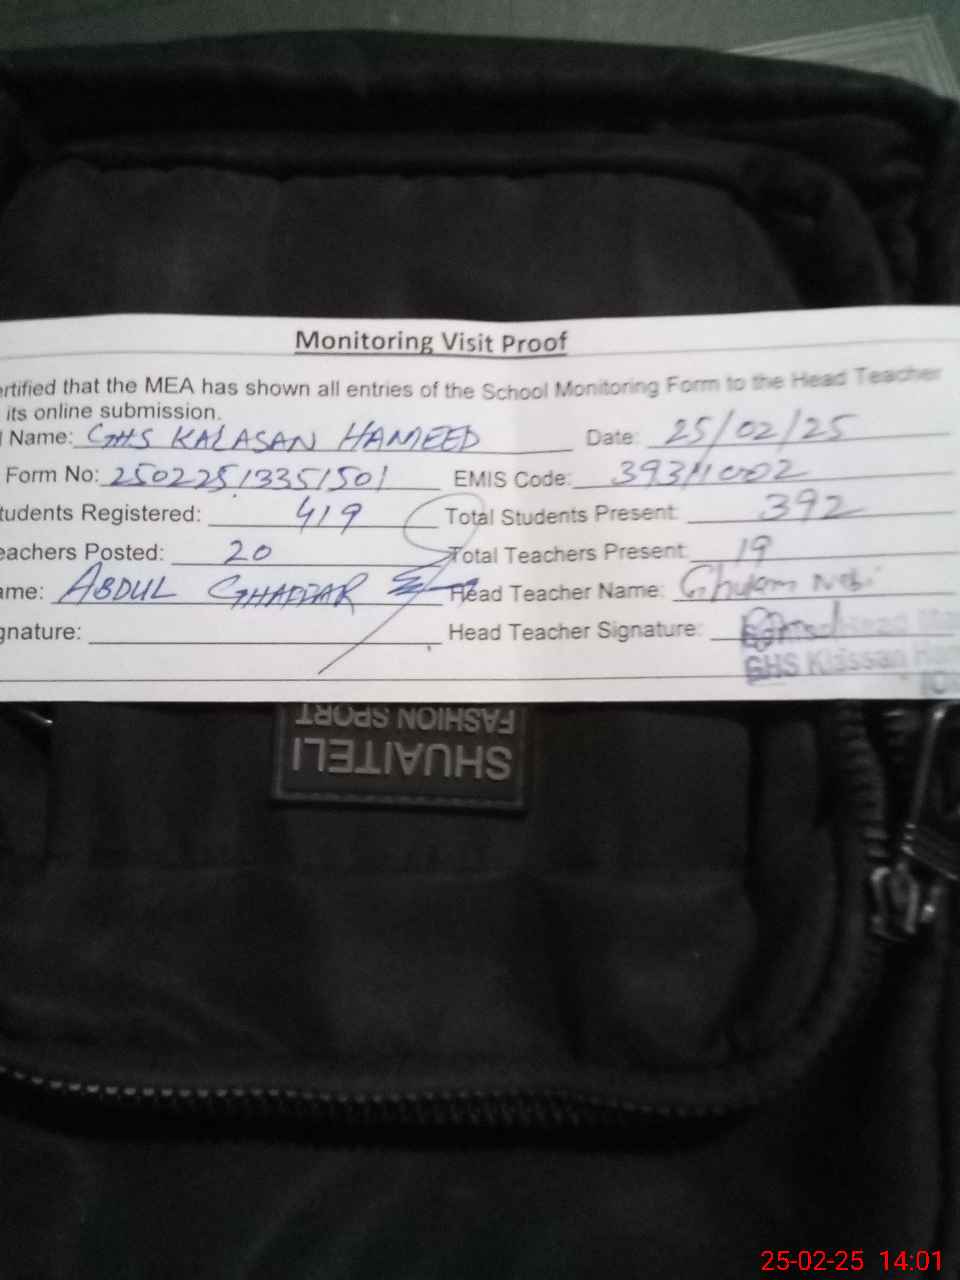 Monitoring Visit Proof
ertified that the MEA has shown all entries of the School Monitoring Form to the Head Teacher
its online submission.
l Name: GHS KALASAN HAMEED Date: 25/02/25
Form No: 25022513351501 EMIS Code: 39311002
tudents Registered: 419 Total Students Present: 392
eachers Posted: 20 Total Teachers Present: 19
ame: ABDUL GHAFFAR Head Teacher Name: Ghulam Nabi
gnature: Head Teacher Signature:
GHS Klassan
SHUAITELI
FASHION SPORT
25-02-25 14:01